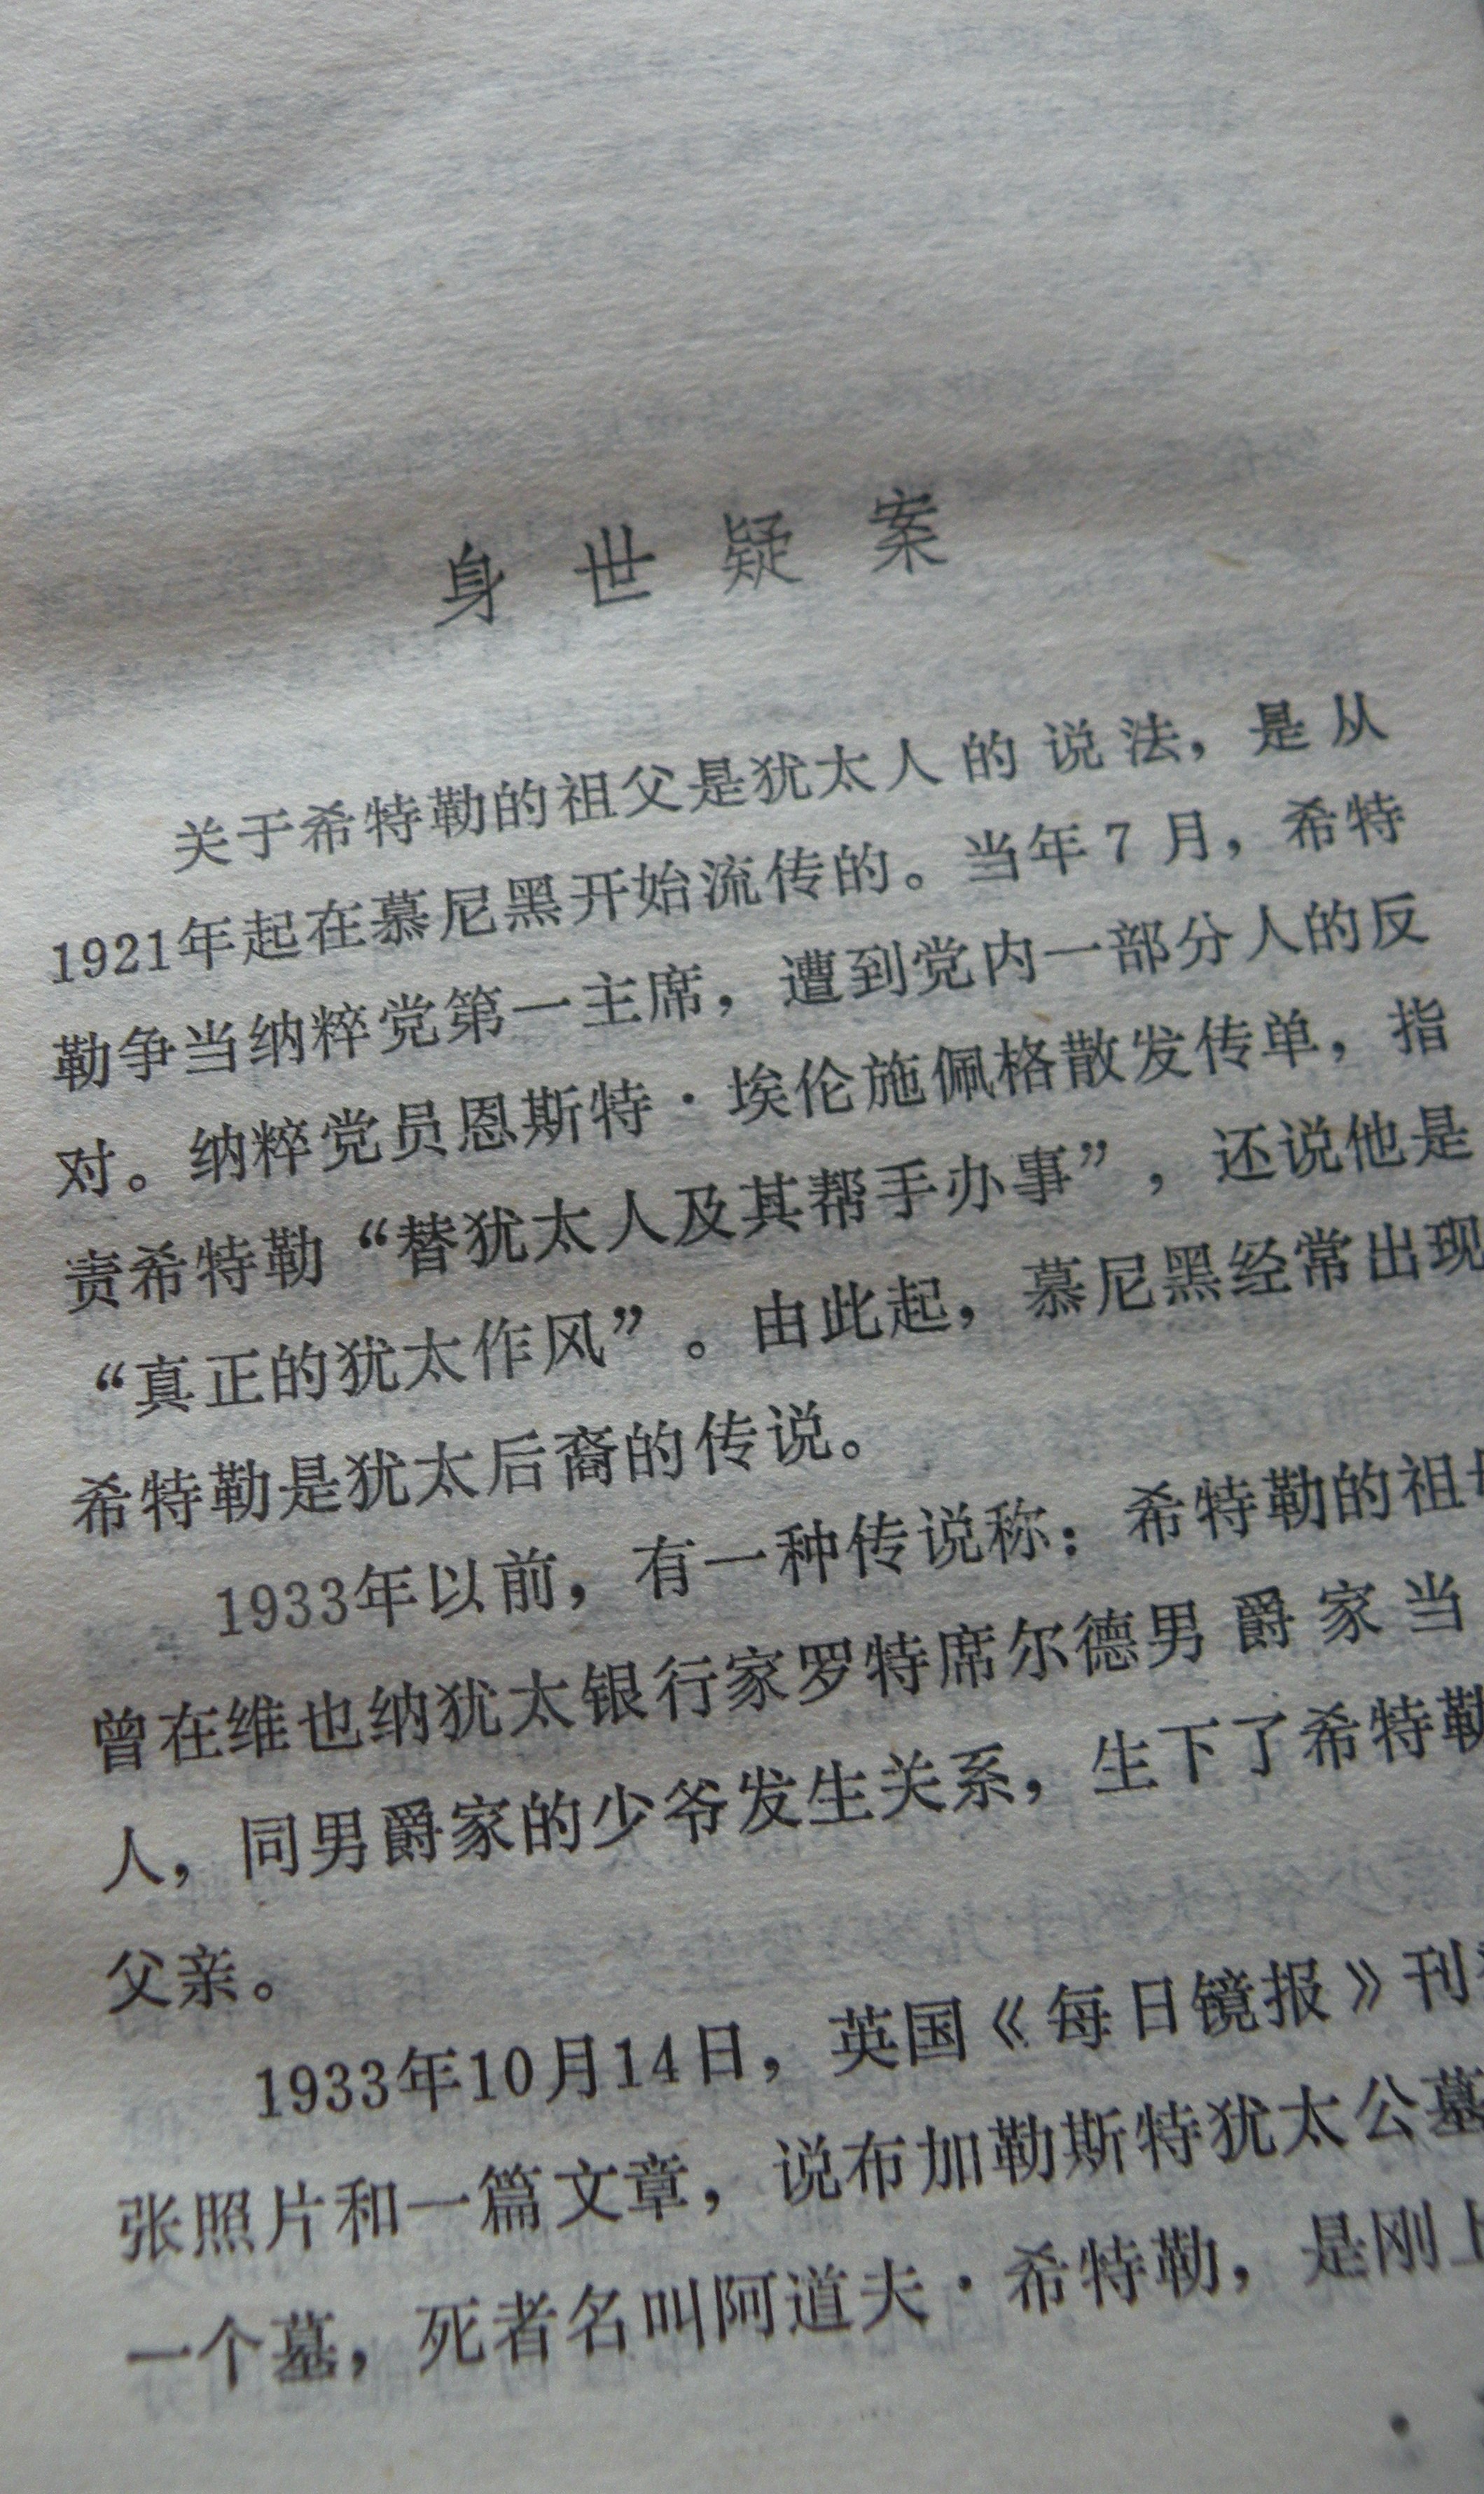 身世疑案
关于希特勒的祖父是犹太人的说法，是从
1921年起在慕尼黑开始流传的。当年7月，希特
勒争当纳粹党第一主席，遭到党内一部分人的反
对。纳粹党员恩斯特·埃伦施佩格散发传单，指
责希特勒“替犹太人及其帮手办事”，还说他是
“真正的犹太作风”。由此起，慕尼黑经常出现
希特勒是犹太后裔的传说。
1933年以前，有一种传说称：希特勒的祖
曾在维也纳犹太银行家罗特席尔德男爵家当
人，同男爵家的少爷发生关系，生下了希特勒
父亲。
1933年10月14日，英国《每日镜报》刊
张照片和一篇文章，说布加勒斯特犹太公墓
一个墓，死者名叫阿道夫·希特勒，是刚